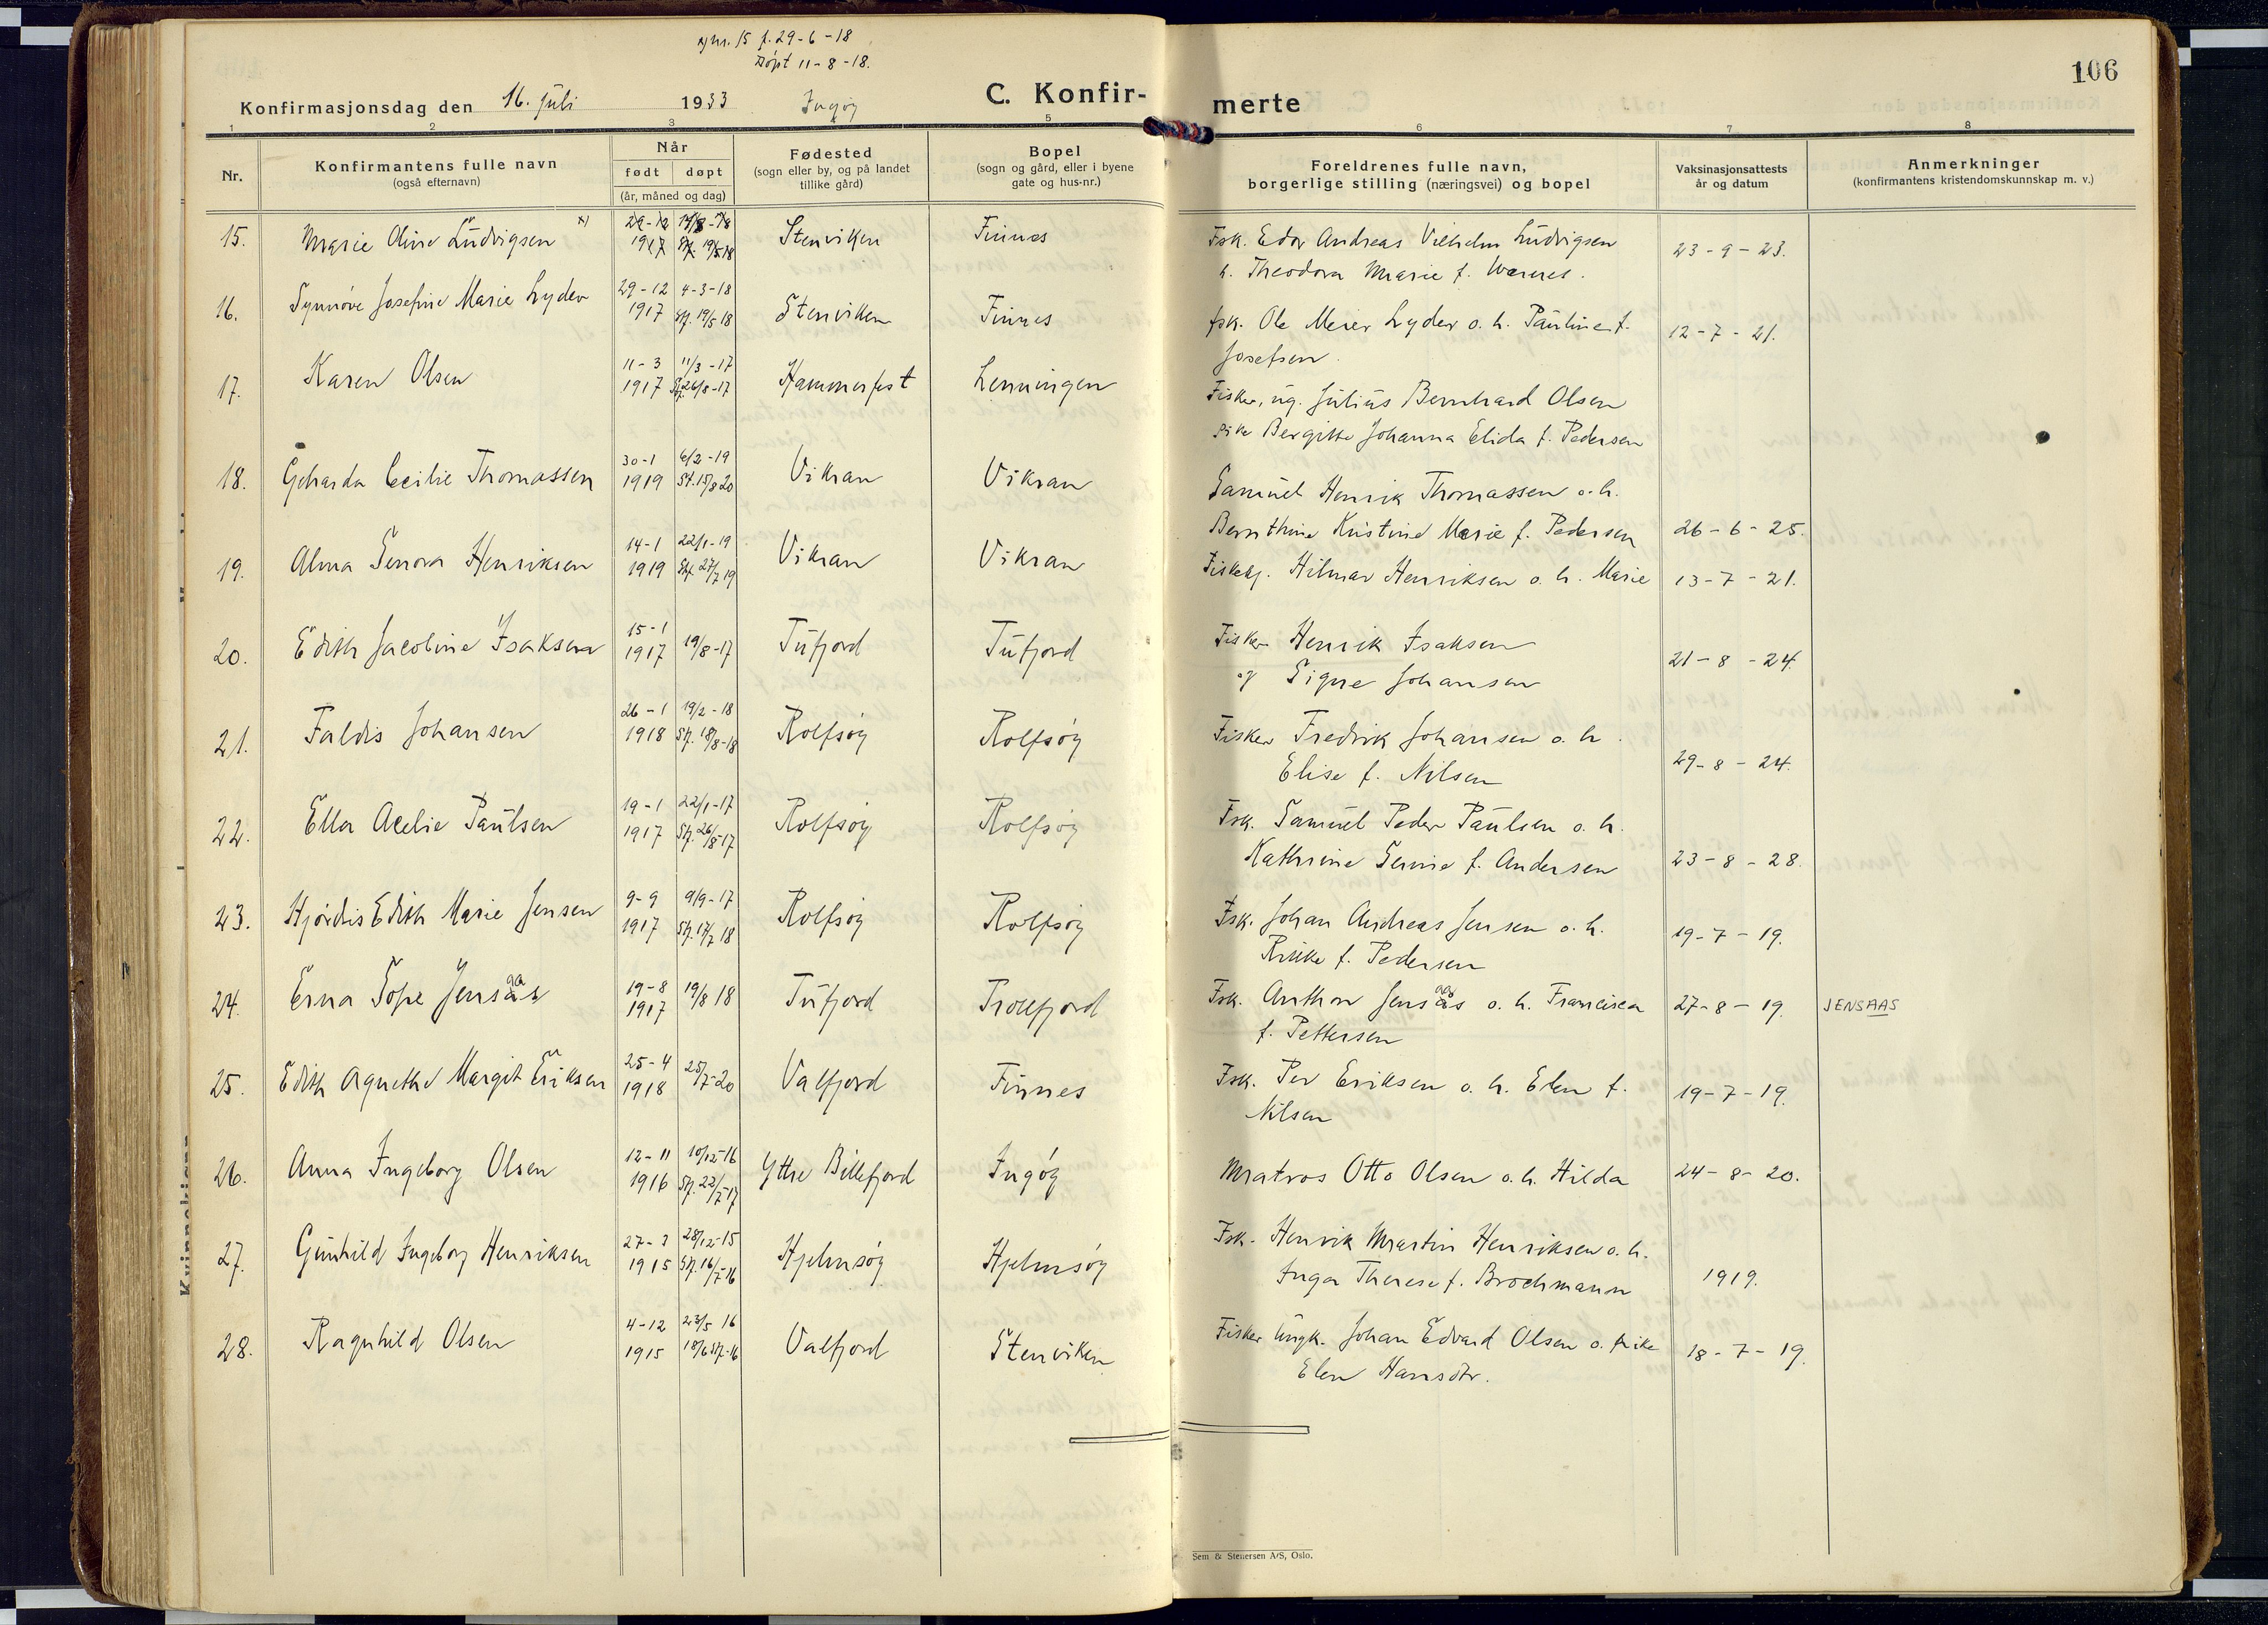 x) nr. 15 f. 29-6-18
Døpt 11-8-18.
106
Konfirmasjonsdag den 16. juli 1933 Ingøy C. Konfir-merte
1 2 3 5 6 7 8
Nr.
Konfirmantens fulle navn
(også efternavn)
Når
født døpt
(år, måned og dag)
Fødested
(sogn eller by, og på landet
tillike gård)
Bopel
(sogn og gård, eller i byene
gate og hus-nr.)
Foreldrenes fulle navn,
borgerlige stilling (næringsvei) og bopel
Vaksinasjonsattests
år og datum
Anmerkninger
(konfirmantens kristendomskunnskap m. v.)
15. Marie Oline Ludvigsen x) 29-12 1917 Stenviken Finnes
Fsk. Edor Andreas Vilhelm Ludvigsen 23-9-23.
h. Theodora Marie f. Warnes.
16. Synnøve Josefine Marie Lyder 29-12 4-3-18
1917 St. 19/5 18 Stenviken Finnes
fsk. Ole Meier Lyder o. h. Pauline f. 12-7-21.
Josefsen
17. Karen Olsen 11-3 11/3-17
1917 St. 26/8-17 Hammerfest Lenningen
Fisker, ug. Julius Bernhard Olsen
pike Bergitte Johanna Elida f. Pedersen
18. Geharda Cecilie Thomassen 30-1 6/2-19
1919 St. 15/8 20 Vikran Vikran
Samuel Henrik Thomassen o. h.
Bernthine Kristine Marie f. Pedersen 26-6-25.
19. Alma Senora Henriksen 14-1 22/1-19
1919 St. 27/7 19 Vikran Vikran
Hilmar Henriksen o. h. Marie 13-7-21.
20. Edith Jacobine Isaksen 15-1
1917 19/8-17 Tufjord Tufjord
Fisker Henrik Isaksen 21-8-24.
og Signe Johansen
21. Faldis Johansen 26-1 19/2-18
1918 St. 18/8-18 Rolfsøy Rolfsøy
Fisker Fredrik Johansen o. h.
Elise f. Nilsen 29-8-24.
22. Ella Acelie Paulsen 19-1 22/1-17
1917 St. 26/8-17 Rolfsøy Rolfsøy
Fsk. Samuel Peder Paulsen o. h.
Kathrine f. Andersen 23-8-28.
23. Hjørdis Edith Marie Jensen 9-9 9/9-17
1917 St. 17/7 18 Rolfsøy Rolfsøy
Fsk. Johan Andreas Jensen o. h. 19-7-19.
Rikke f. Pedersen
24. Erna Sofie Jensås aa 19-8 19/8 18
1917 Tufjord Trollfjord
Fsk. Anthon Jensås aa o. h. Francisca 27-8-19. JENSAAS
f. Pettersen
25. Edith Agnethe Margit Eriksen 25-4 25/7-20
1918 Valfjord Finnes
Fsk. Per Eriksen o. h. Elen f. 19-7-19.
Nilsen
26. Anna Ingeborg Olsen 12-11 10/12-16
1916 St. 22/7-17 Yttre Billefjord Ingøy
Matros Otto Olsen o. h. Hilda 24-8-20.
27. Gunhild Ingeborg Henriksen 28/12-15
1915 St. 16/7-16 Hjelmsøy Hjelmsøy
Fsk. Henrik Martin Henriksen o. h.
Inga Therese f. Brochmann 1919.
28. Ragnhild Olsen 4-12 23/5 16
1915 Valfjord Stenviken
Fisker ungk. Johan Edvard Olsen o. pike 18-7-19.
Elen Hansdtr.
Sem & Stenersen A/S, Oslo.